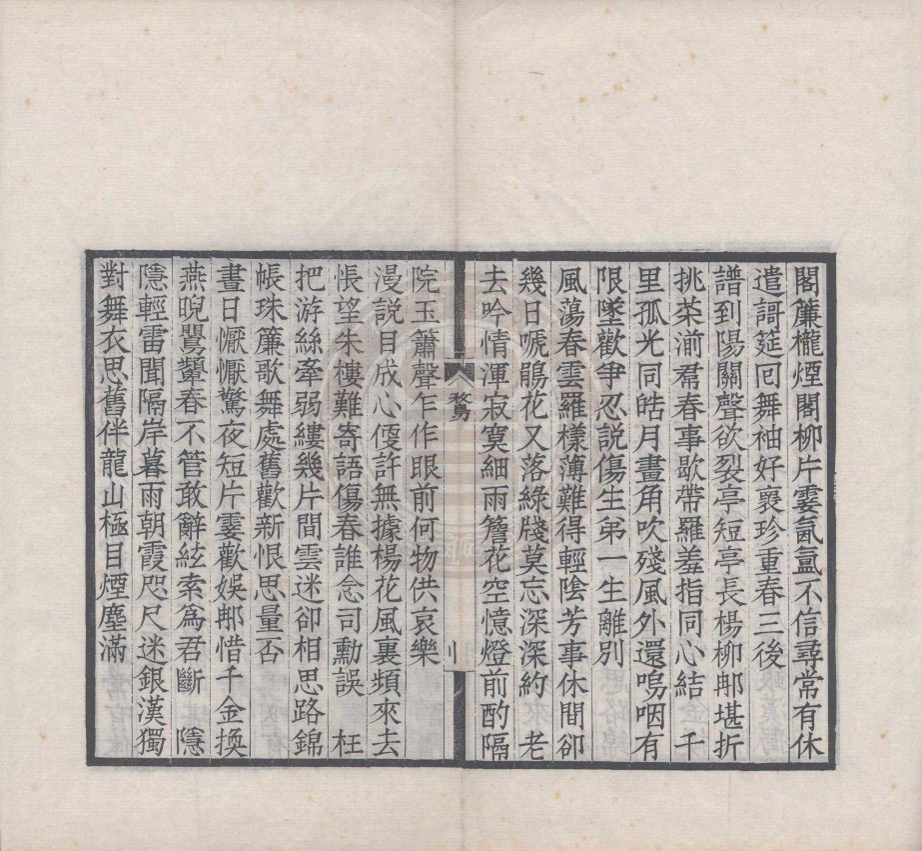 閣簾櫳煙閣柳片霎氤氳不信尋常有休
遣謌筵囘舞袖好褱珍重春三後
譜到陽關聲欲裂亭短亭長楊柳郍堪折
挑菜湔帬春事歇帶羅羞指同心結　千
里孤光同皓月畫角吹殘風外還嗚咽有
限墜歡爭忍説傷生弟一生離別
風蕩春雲羅樣薄難得輕陰芳事休閒卻
幾日嗁鵑花又落綠牋莫忘深深約　老
去吟情渾寂寞細雨簷花空憶燈前酌隔
鶩
院玉簫聲乍作眼前何物供哀樂
漫説目成心便許無據楊花風裏頻來去
悵望朱樓難寄語傷春誰念司勳誤　枉
把游絲牽弱縷幾片閒雲迷卻相思路錦
帳珠簾歌舞處舊歡新恨思量否
晝日懨懨驚夜短片霎歡娛郍惜千金換
燕睨鶯顰春不管敢辭絃索爲君斷　隱
隱輕雷聞隔岸暮雨朝霞咫尺迷銀漢獨
對舞衣思舊伴龍山極目煙塵滿